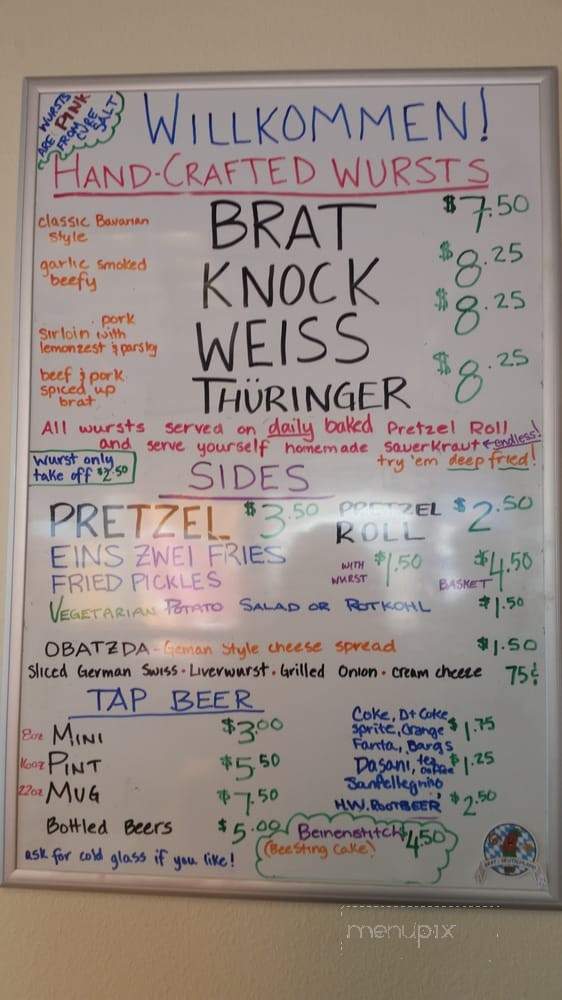 WURSTS
ARE PINK
FROM CURE
SALT
WILLKOMMEN!
HAND-CRAFTED WURSTS
classic Bavarian style BRAT $7.50
garlic smoked beefy KNOCK $8.25
pork sirloin with lemonzest & parsley WEISS $8.25
beef & pork spiced up brat THÜRINGER $8.25
All wursts served on daily baked Pretzel Roll
and serve yourself homemade sauerkraut ← endless!
Wurst only
take off $2.50
try 'em deep fried!
SIDES
PRETZEL $3.50
PRETZEL ROLL $2.50
EINS ZWEI FRIES
FRIED PICKLES
WITH WURST $1.50
BASKET $4.50
VEGETARIAN POTATO SALAD OR ROTKOHL $1.50
OBATZDA - German Style cheese spread $1.50
Sliced German Swiss • Liverwurst • Grilled Onion • cream cheese 75¢
TAP BEER
8oz MINI $3.00
16oz PINT $5.50
22oz MUG $7.50
Bottled Beers $5.00
ask for cold glass if you like!
Coke, Dt Coke,
Sprite, Orange $1.75
Fanta, Barqs
Dasani, tea, coffee $1.25
SanPellegrino
H.W. ROOTBEER $2.50
Beinenstitch $4.50
(BeeSting Cake!)
menupix